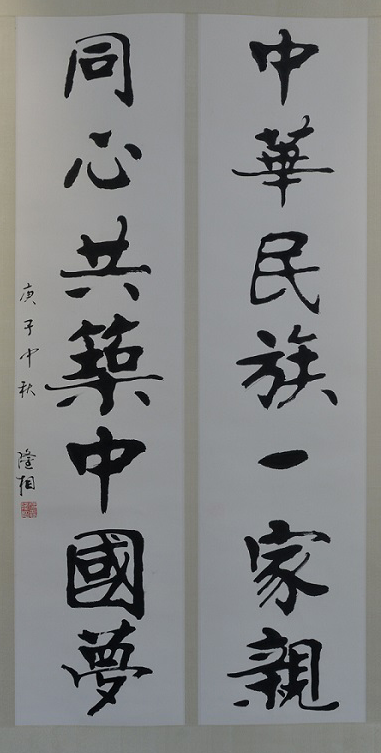 中華民族一家親
同心共築中國夢
庚子中秋 隆相